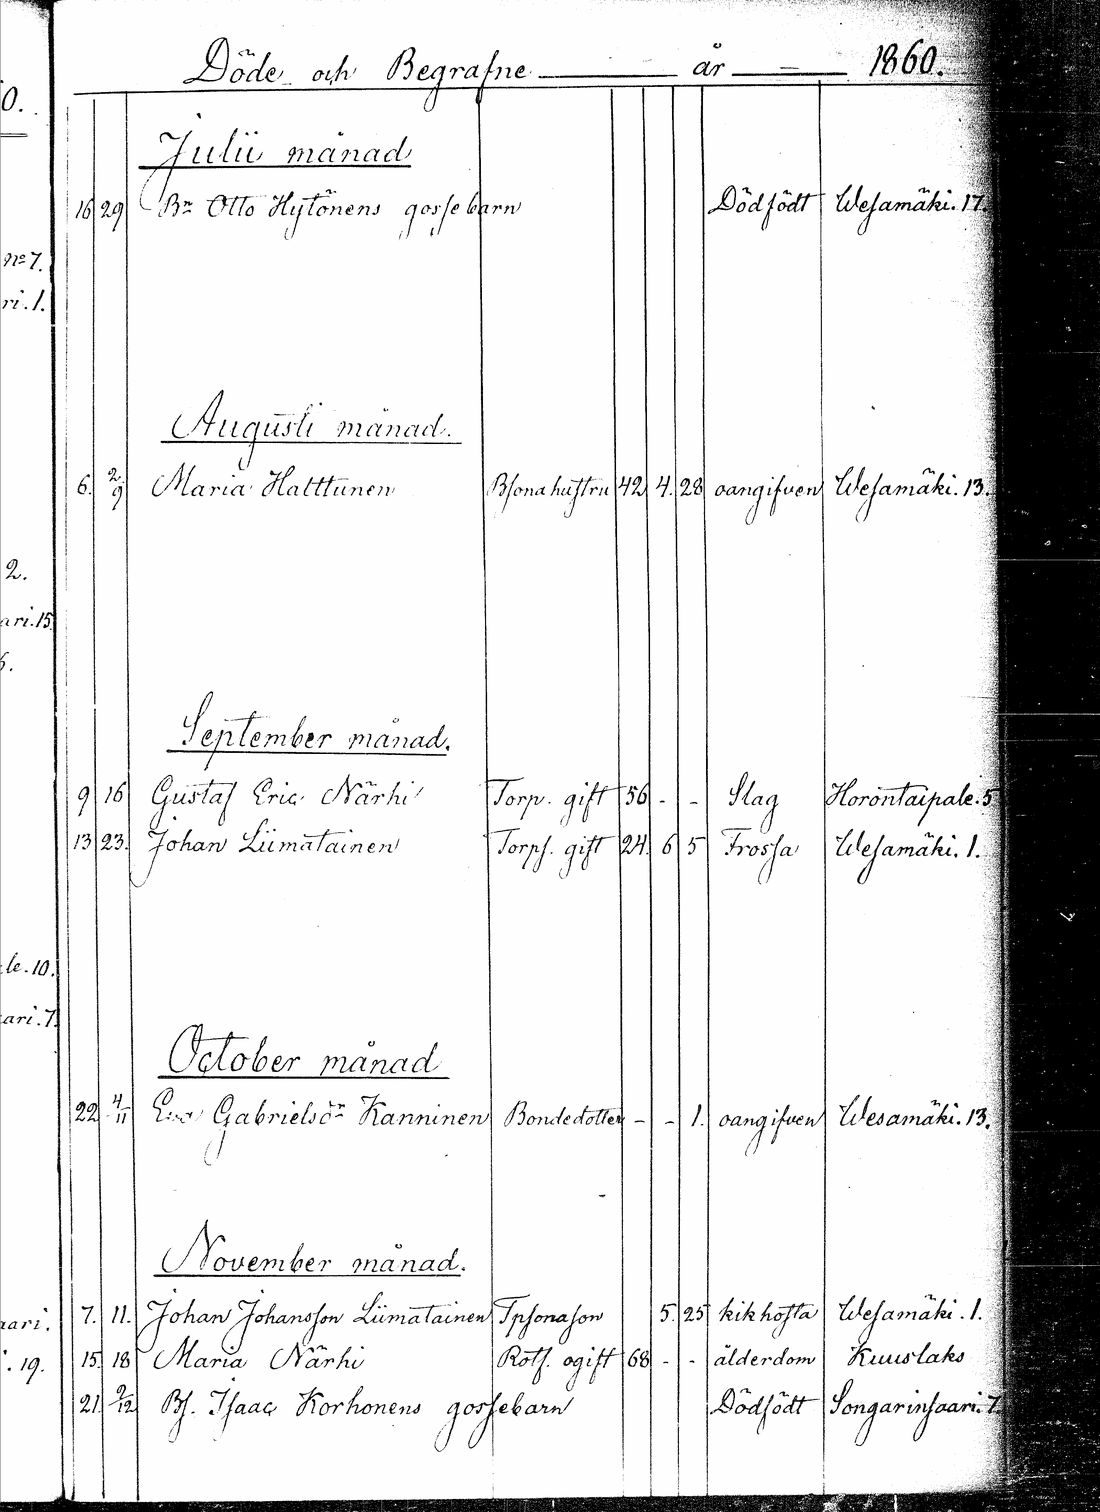 Döde och Begrafne år 1860.
0.
Julii månad
16 29 Bn Otto Hytönens gossebarn Dödfödt Wesamäki. 17.
no 7.
ri. 1.
Augusti månad.
6. 2/9 Maria Hatttunen Bsonahustru 42 4. 28 oangifven Wesamäki. 13.
2.
ari. 15
6.
September månad.
9 16 Gustaf Eric Närhi Torp. gift 56 - - Slag Horontaipale. 5
13 23. Johan Liimatainen Torps. gift 24. 6 5 Frossa Wesamäki. 1.
le. 10.
ari. 7.
October månad
22 4/11 Eva Gabrielsdr Kanninen Bondedotter - - 1. oangifven Wesamäki. 13.
November månad.
7. 11. Johan Johansson Liimatainen Tpsonason 5. 25 kikhosta Wesamäki. 1.
aari.
15. 18 Maria Närhi Rotf. ogift 68 - - ålderdom Kuuslaks
19.
21. 2/12 Bf. Isaac Korhonens gossebarn Dödfödt Songarinsaari. 7.